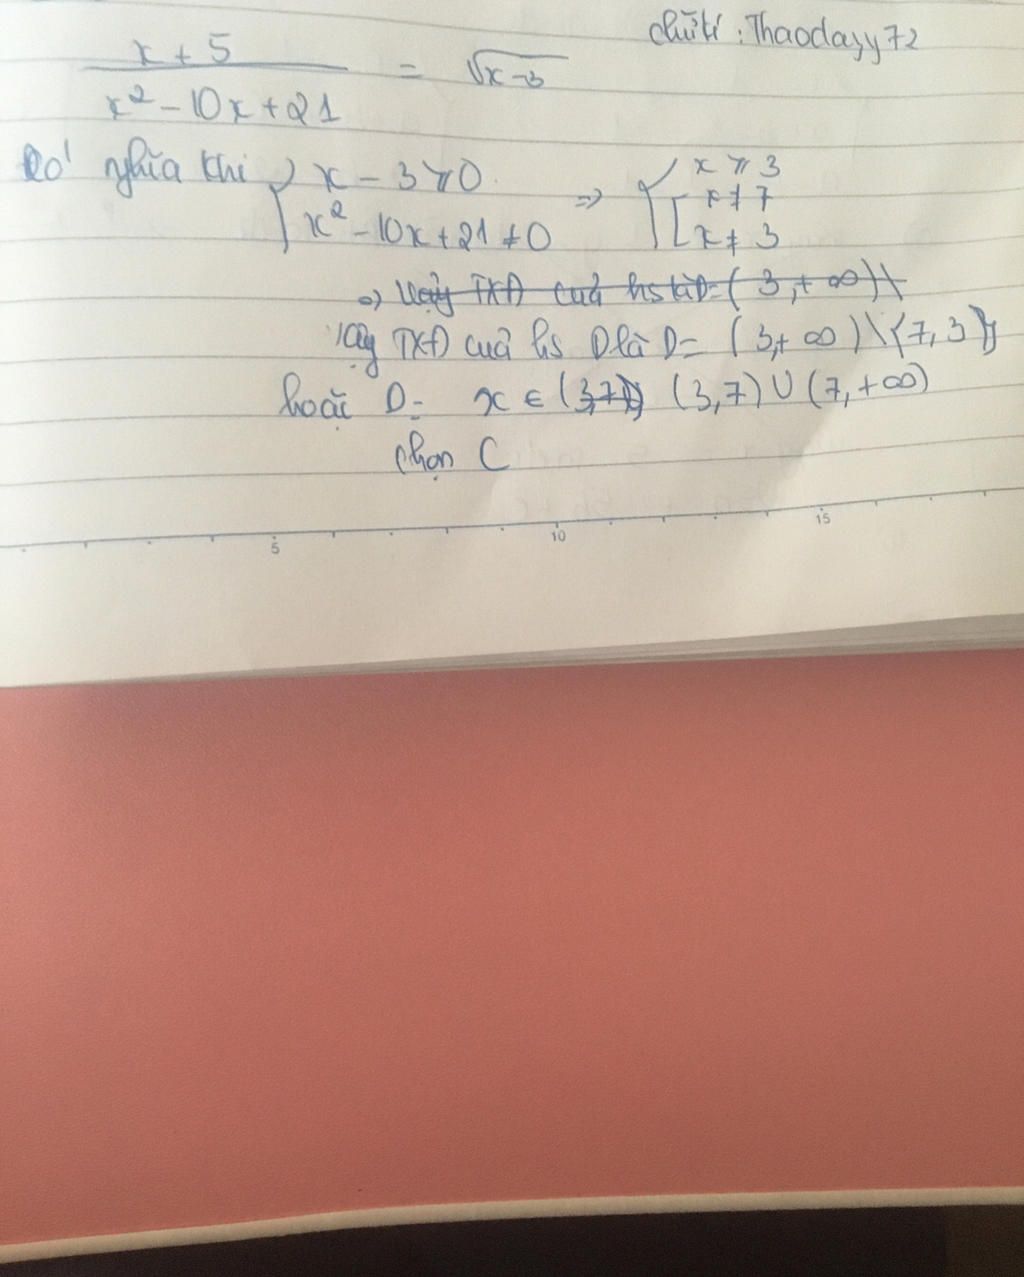 chữ kí : Thaodayy72
x + 5 / x² - 10x + 21 = √x-3
Có nghĩa khi { x - 3 ⩾ 0 ⇒ { x ⩾ 3
x² - 10x + 21 ≠ 0 [ x ≠ 7
x ≠ 3
⇒ Vậy TXĐ cuả hs là D= ( 3, + ∞ ) \
Vậy TXĐ cuả hs D là D= ( 3, + ∞ ) \ {7, 3}
hoặc D = x ∈ (3,7) (3,7) ∪ (7, +∞)
chọn C
5 10 15